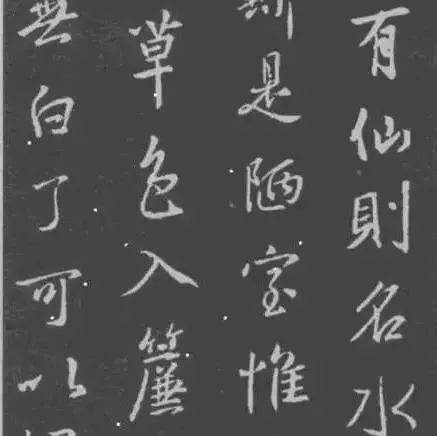 有仙則名水
斯是陋室惟
草色入簾
無白丁可以